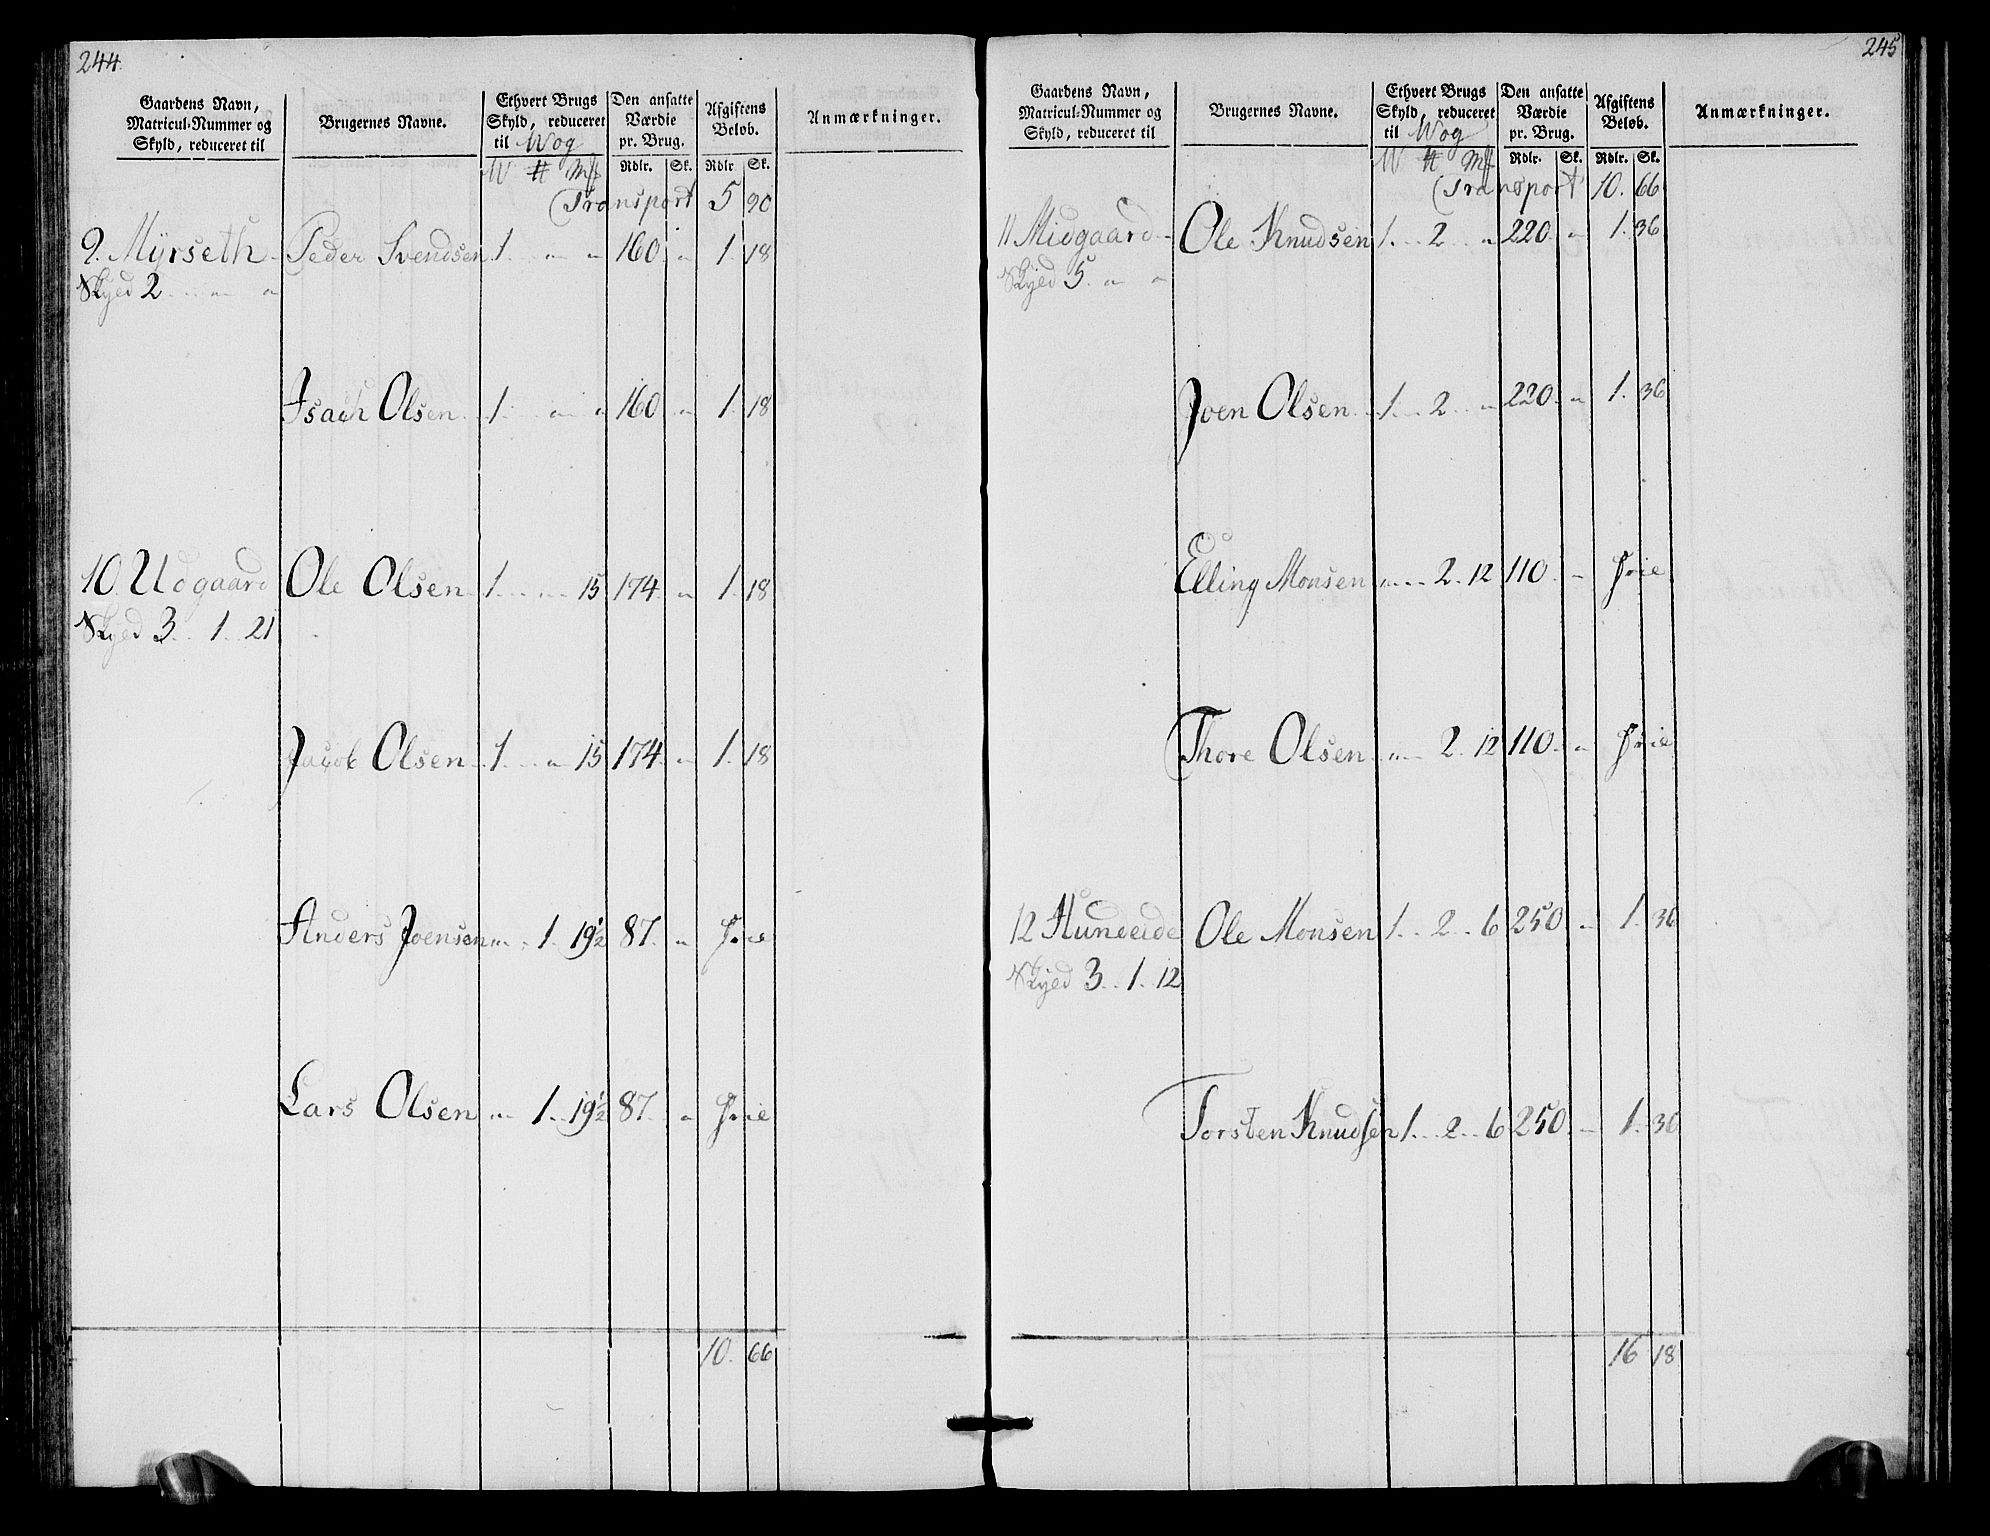 244.
Gaardens Navn, Matricul-Nummer og Skyld, reduceret til
Brugernes Navne.
Ethvert Brugs Skyld, reduceret til Wog
Den ansatte Værdie pr. Brug.
Afgiftens Beløb.
Anmærkninger.
W ## Mk Rdlr. Sk. Rdlr Sk.
(Transport 5 90
9. Myrseth Peder Svendsen 1. " " 160. " 1. 18
Skyld 2 " "
Isach Olsen 1. " " 160 " 1. 18
10. Udgaard Ole Olsen 1. " 15 174. " 1. 18
Skyld 3. 1. 21
Jacob Olsen 1. " 15 174. " 1. 18
Anders Joensen " 1. 19½ 87. " Frie
Lars Olsen " 1. 19½ 87. " Frie
10. 66
245
Gaardens Navn, Matricul-Nummer og Skyld, reduceret til
Brugernes Navne.
Ethvert Brugs Skyld, reduceret til Wog
Den ansatte Værdie pr. Brug.
Afgiftens Beløb.
Anmærkninger.
W ## Mk Rdlr. Sk. Rdlr. Sk.
(Transport 10. 66
11 Midgaard Ole Knudsen 1. 2. " 220 " 1. 36
Skyld 5. " "
Joen Olsen 1. 2. " 220. " 1. 36
Elling Monsen " 2. 12 110. " Frie
Thore Olsen " 2. 12 110. " Frie
12 Hundeide Ole Monsen 1. 2. 6 250 " 1. 36
Skyld 3. 1. 12
Torsten Knudsen 1. 2. 6 250. " 1. 36
16 18